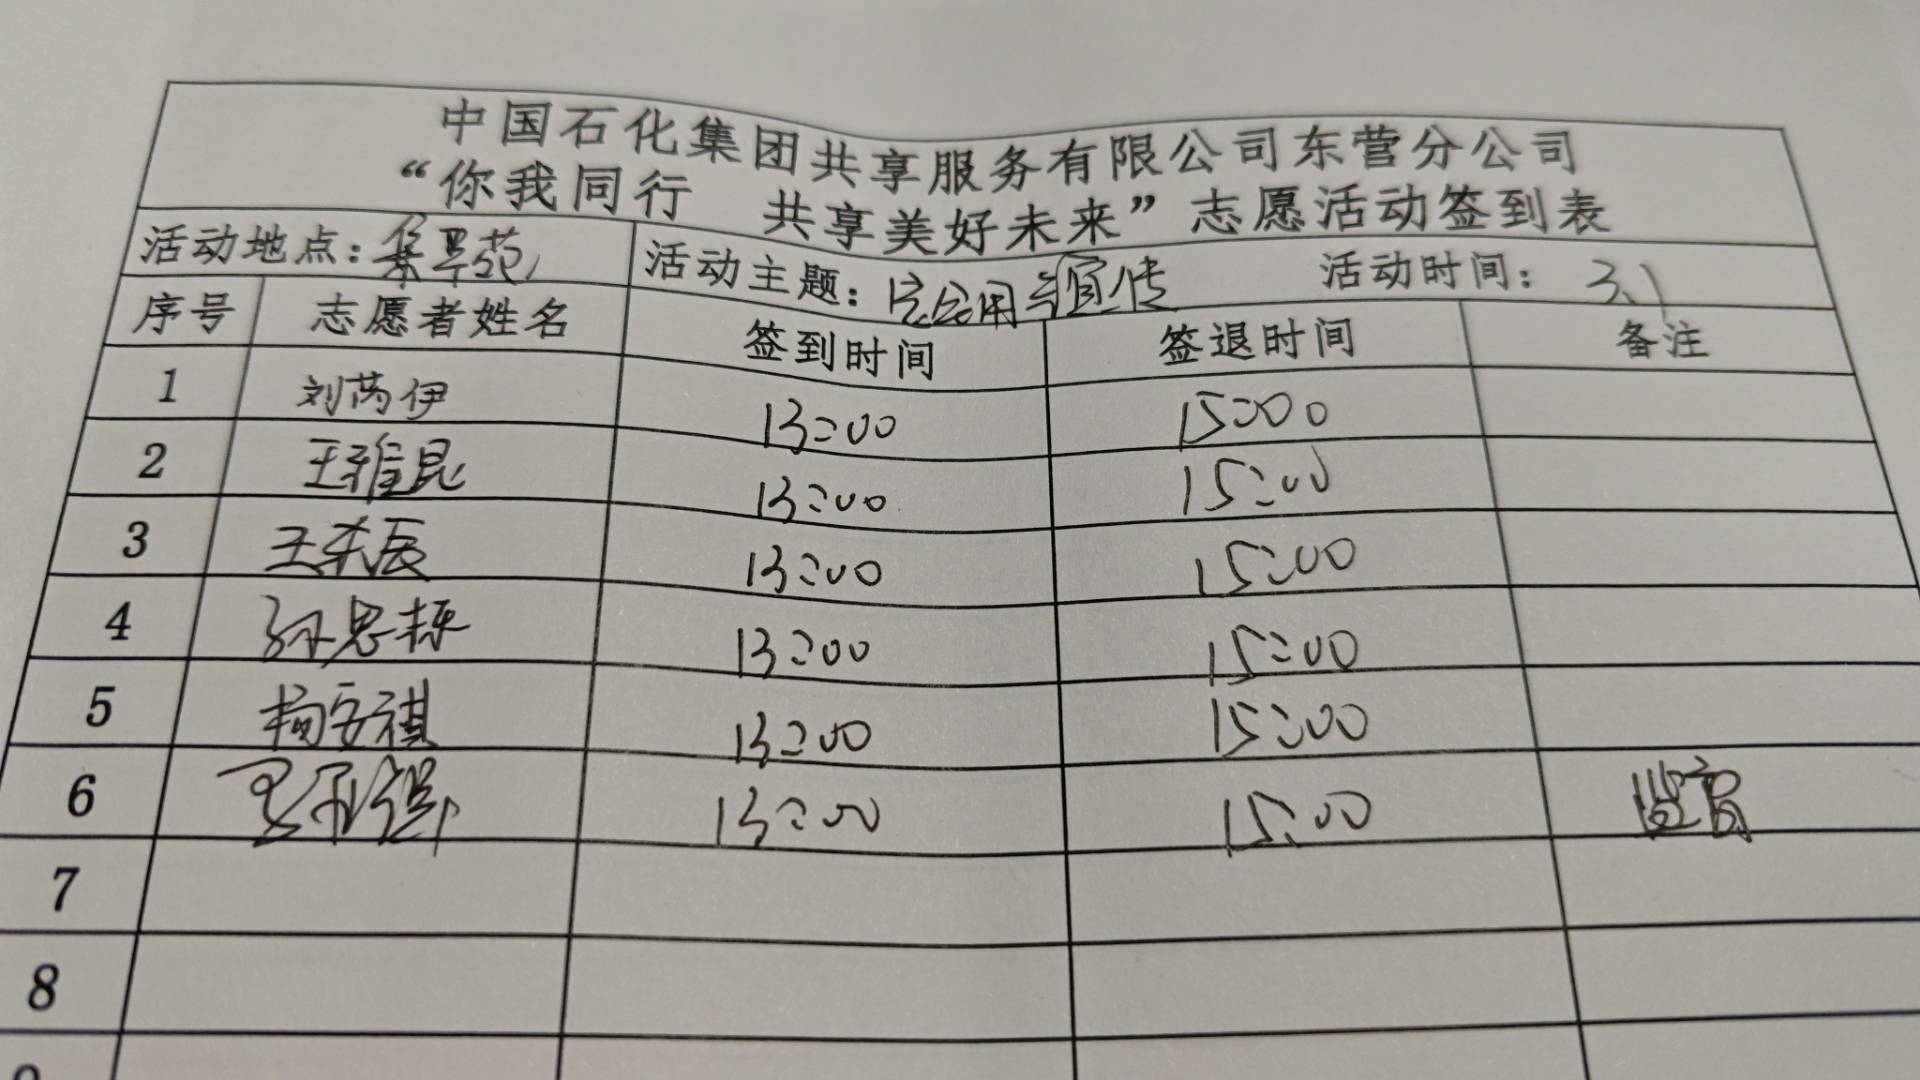 中国石化集团共享服务有限公司东营分公司
“你我同行 共享美好未来”志愿活动签到表
活动地点：集翠苑 活动主题：安全用气宣传 活动时间：3.1
序号 志愿者姓名 签到时间 签退时间 备注
1 刘芮伊 13:00 15:00
2 王雅昆 13:00 15:00
3 王东辰 13:00 15:00
4 孙思栋 13:00 15:00
5 杨安祺 13:00 15:00
6 13:00 15:00
7
8